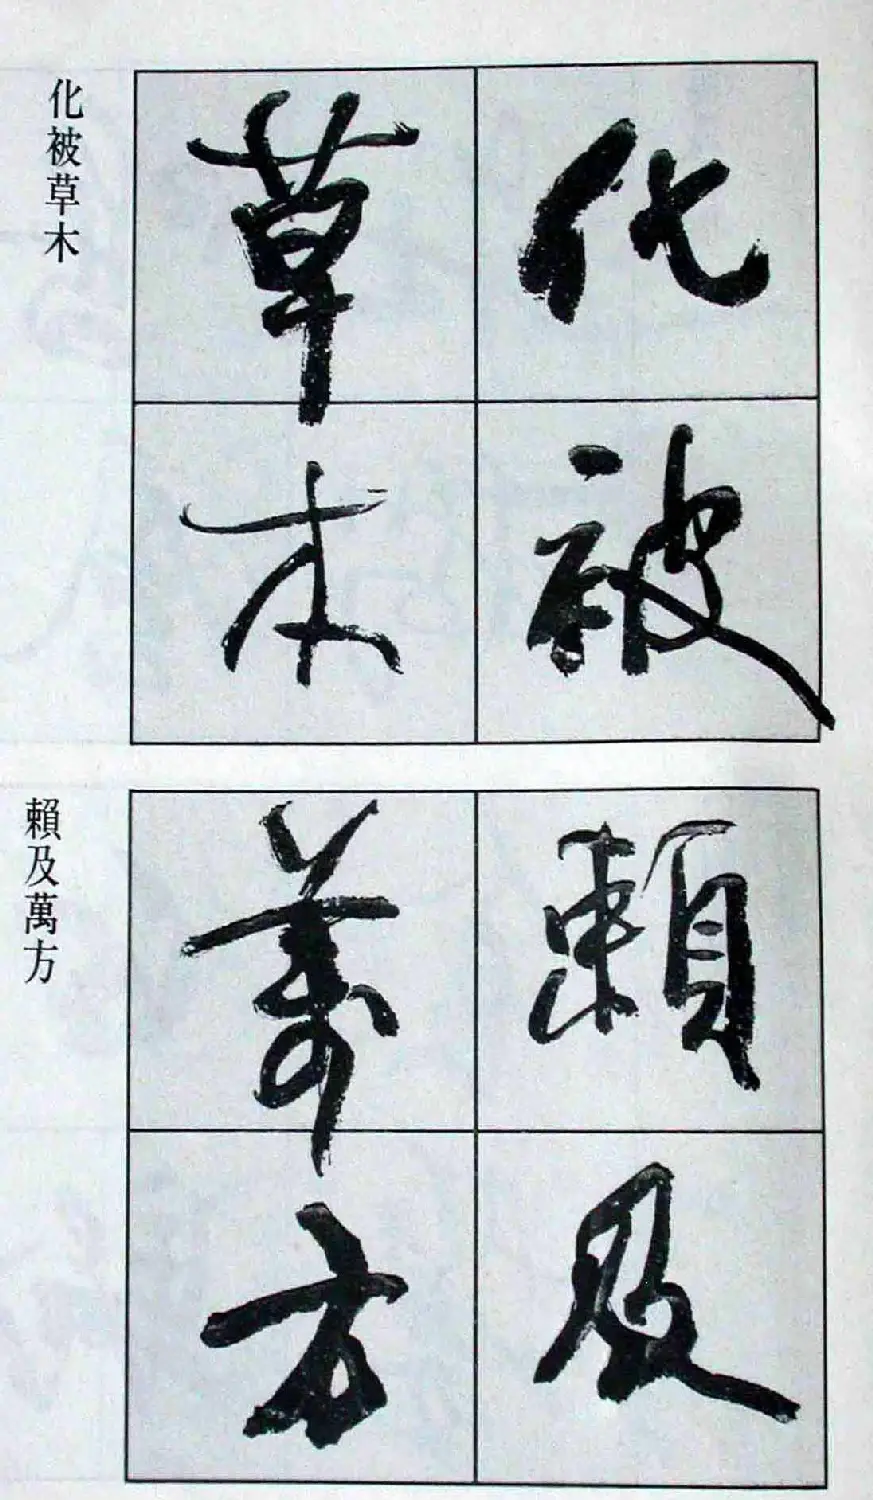 化被
草木
化被草木
賴及
萬方
賴及萬方